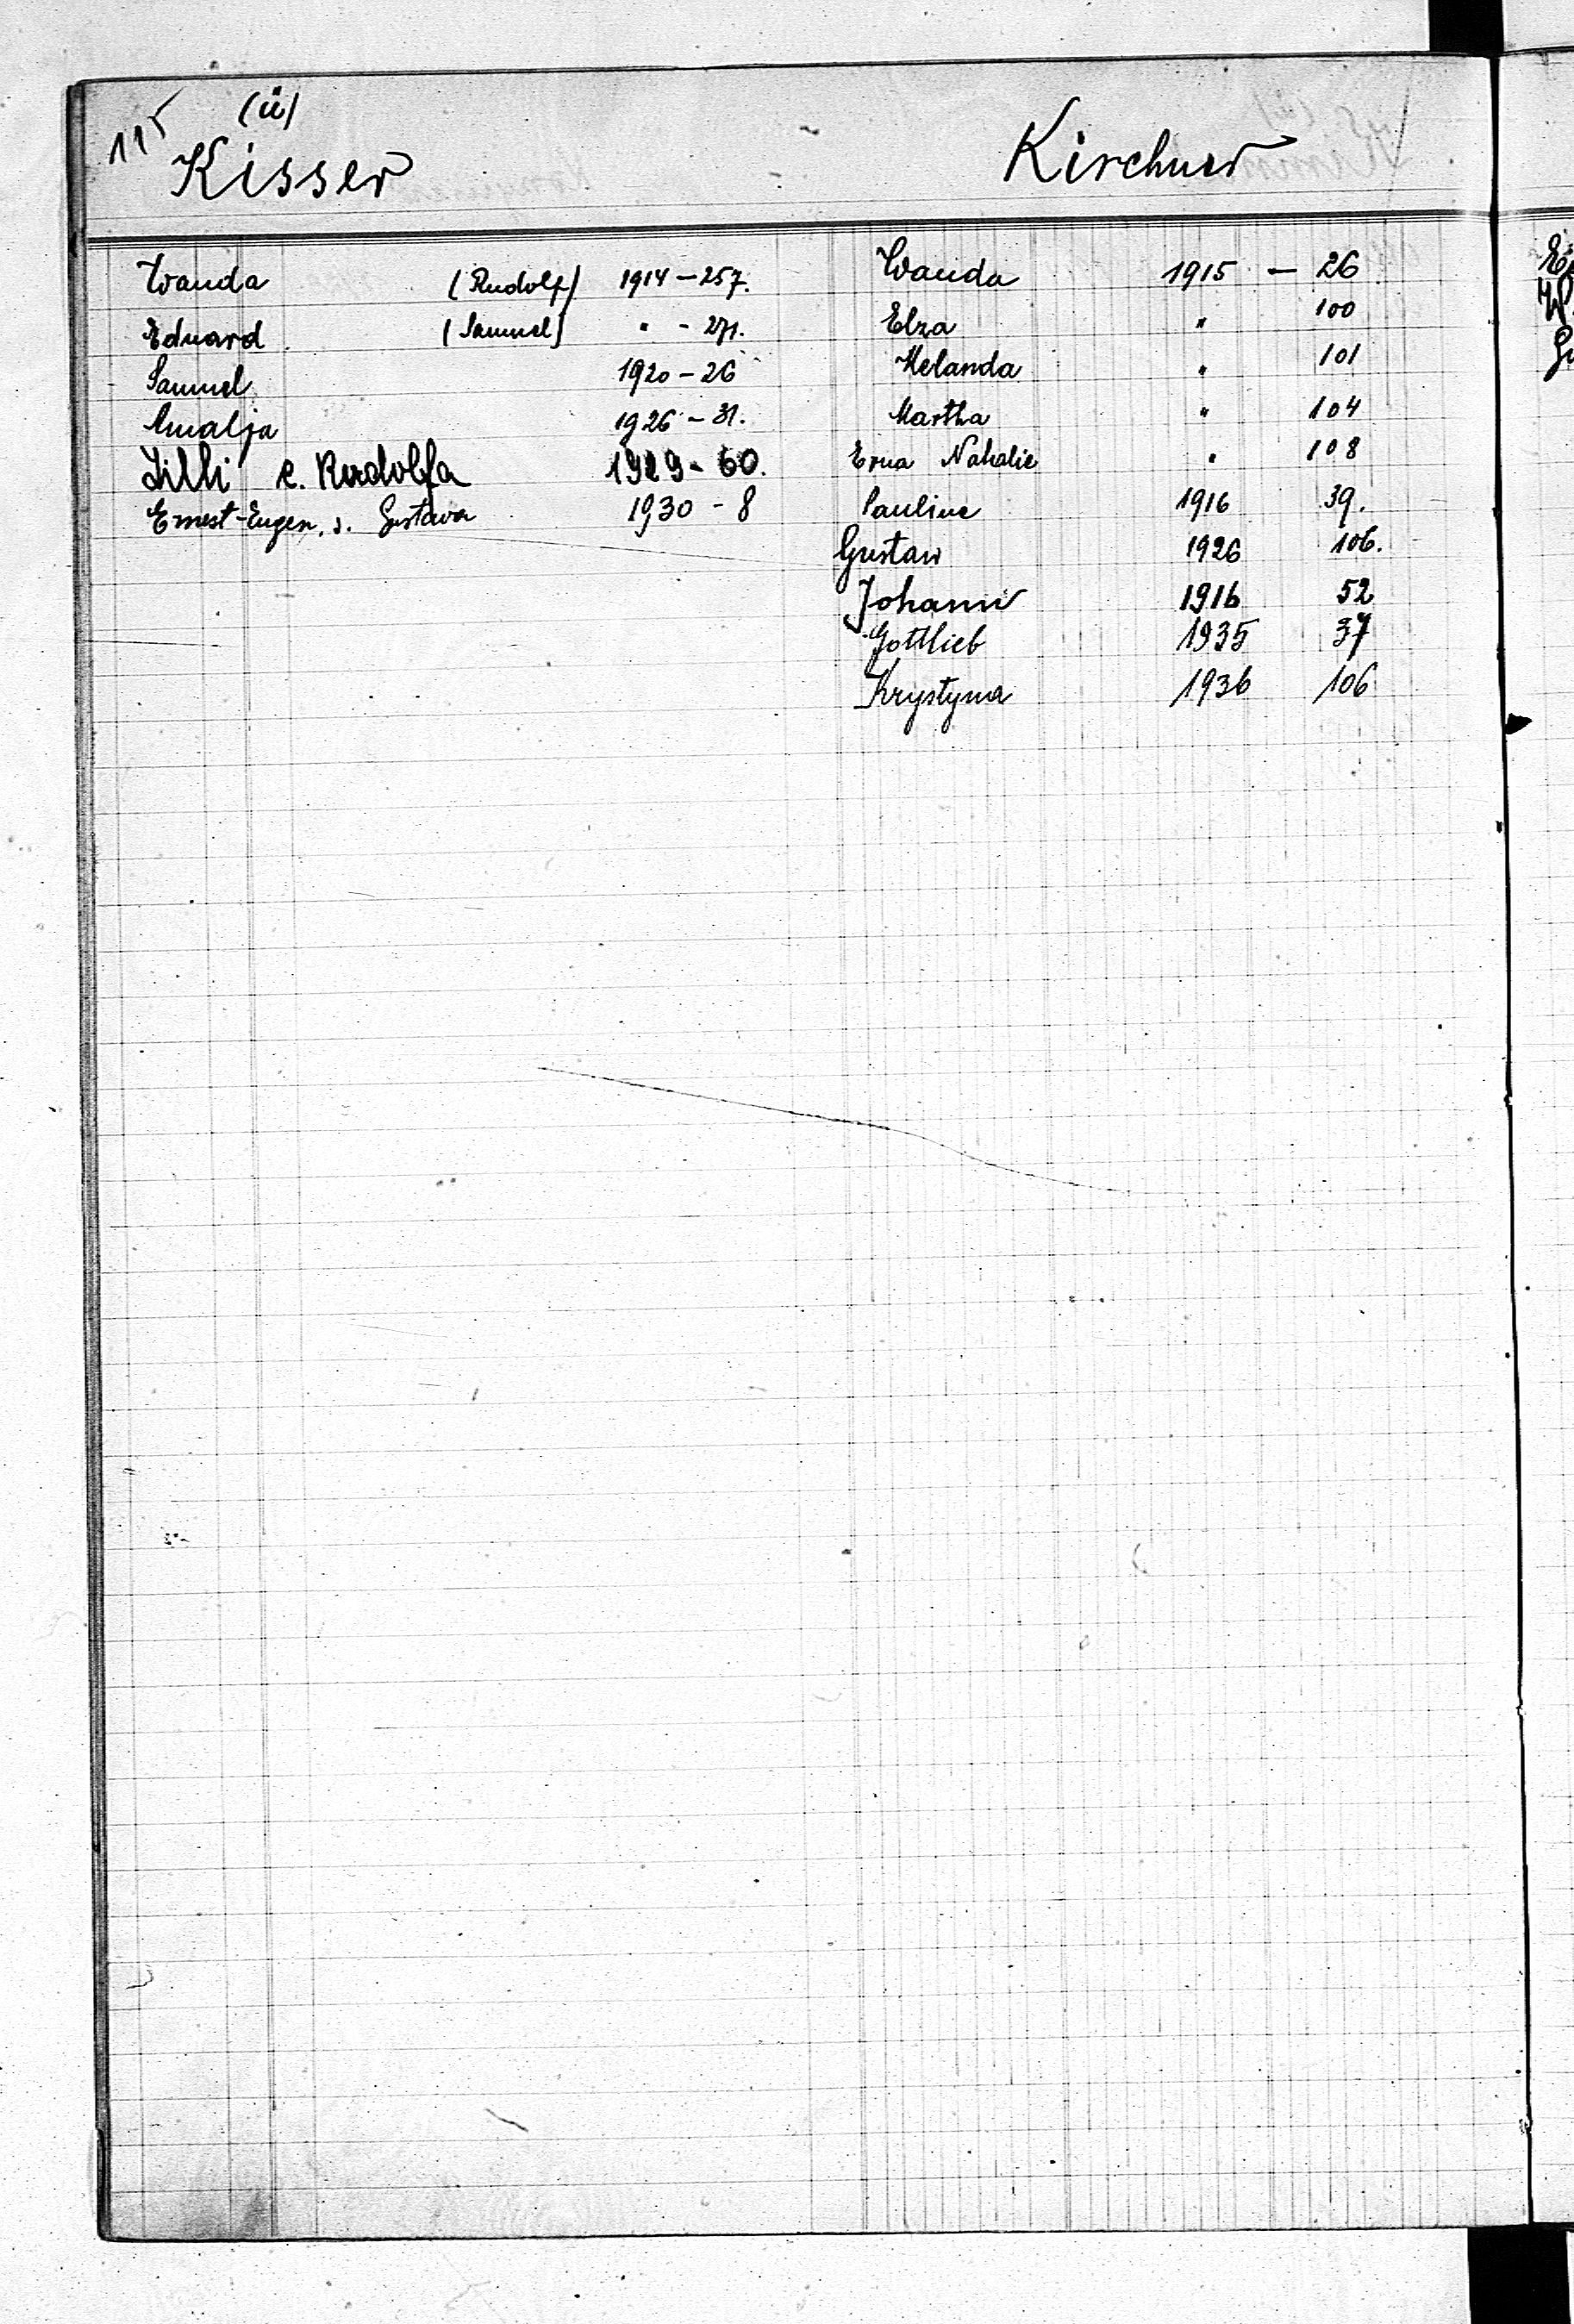 115
(ü)
Kisser
Wanda (Rudolf) 1914 - 257.
Eduard (Samuel) " - 271.
Samuel 1920 - 26
Amalja 1926 - 31.
Lilli c. Rudolfa 1929 - 60.
Ernest-Eugen, s. Gustava 1930 - 8
Kirchner
Wanda 1915 - 26
Elza " 100
Melanda " 101
Martha " 104
Erna Nathalie " 108
Pauline 1916 39.
Gustaw 1926 106.
Johann 1916 52
Gottlieb 1935 37
Krystyna 1936 106